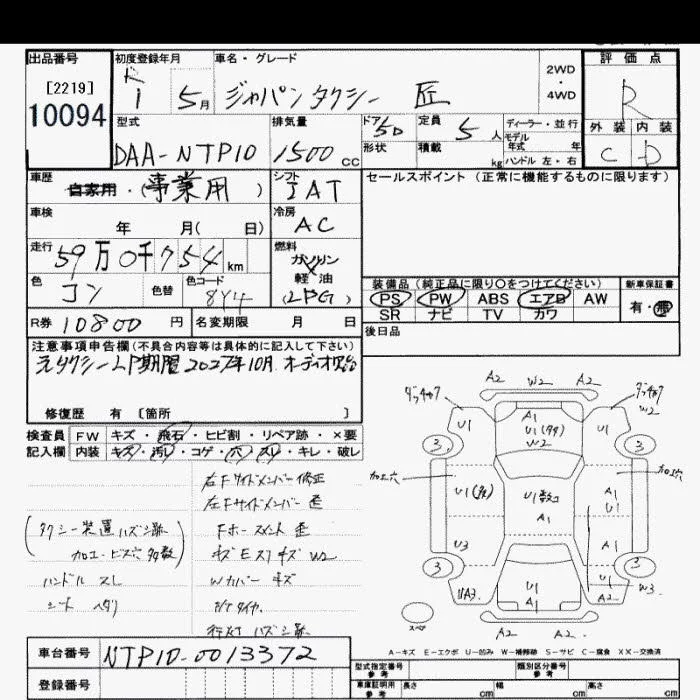 出品番号
[2219]
10094
初度登録年月
R
1 5月
車名・グレード
ジャパンタクシー 匠
2WD
・
4WD
評価点
R
外装 内装
C D
型式
DAA-NTP10
排気量
1500 cc
ドア 5D
形状
定員 5 人
積載 kg
ディーラー・並行
モデル
年式 年
ハンドル 左・右
車歴
自家用・(事業用)
シフト
IAT
車検
年 月( 日)
冷房
AC
走行
59万0千754 km
燃料
ガソリン
軽油
(LPG)
色
コン
色替
色コード
8Y4
R券 10800 円
名変期限 月 日
セールスポイント (正常に機能するものに限ります)
装備品 (純正品に限り○をつけてください)
PS PW ABS エアB AW
SR ナビ TV カワ
新車保証書
有・無
後日品
注意事項申告欄(不具合内容等は具体的に記入して下さい)
元タクシー LP期限 2027年10月 オーディオ欠品
修復歴 有 [箇所 ]
検査員 FW キズ・飛石・ヒビ割・リペア跡・×要
記入欄 内装 キズ・汚れ・コゲ・穴・スレ・キレ・破レ
右Fサイドメンバー修正
左Fサイドメンバー 歪
(タクシー装置ハズシ跡
加工・ビス穴多数)
Fホースメント 歪
キズ E スリキズ W2
ハンドル スレ
Wカバー キズ
シート ヘタリ
行灯 ハズシ跡
A2 W2 A2
U1 A1 U1
U1(多)
W2
W2
3 3
加工穴 加工穴
U1(多) U1数コ A1
A1 U1
U3 A1
3 3
U1 U1 W3
UA3 A1 A2
スペア
A2 A2
A-キズ E-エクボ U-凹み W-補修跡 S-サビ C-腐食 XX-交換済
車台番号 NTP10-0013372
登録番号
型式指定番号
参考
類別区分番号
参考
車庫証明用
参考
長さ cm 幅 cm 高さ cm